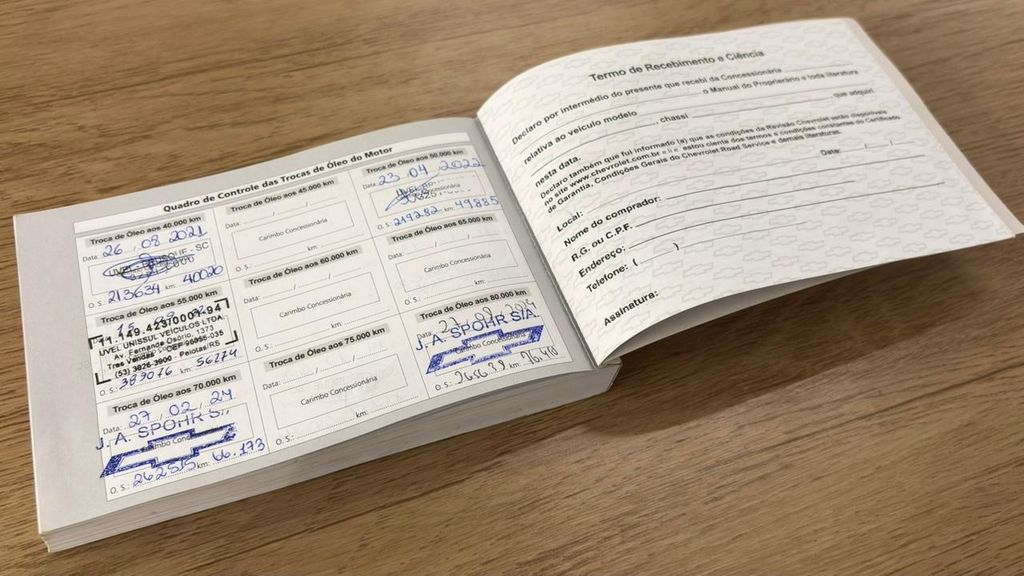 Quadro de Controle das Trocas de Óleo do Motor
Troca de Óleo aos 40.000 km
Data: 26 / 08 / 2021
O. S.: 213634 km: 40020
Troca de Óleo aos 45.000 km
Data: / /
Carimbo Concessionária
O. S.: km:
Troca de Óleo aos 50.000 km
Data: 23 04 2022
O. S.: 219282 km: 49885
Troca de Óleo aos 55.000 km
11.149.423/0007-94
UVEL UNISSUL VEÍCULOS LTDA.
Av. Fernando Osório, 1373
Três Vendas - CEP 96055-035
(53) 3026-3900 Pelotas/RS
O. S.: 389016 km: 56224
Troca de Óleo aos 60.000 km
Data: / /
Carimbo Concessionária
O. S.: km:
Troca de Óleo aos 65.000 km
Data: / /
Carimbo Concessionária
O. S.: km:
Troca de Óleo aos 70.000 km
Data: 27 / 02 / 24
J. A. SPOHR S/A
O. S.: 262515 km: 66.173
Troca de Óleo aos 75.000 km
Data: / /
Carimbo Concessionária
O. S.: km:
Troca de Óleo aos 80.000 km
J. A. SPOHR S/A.
O. S.: 265639 km: 76.410
Termo de Recebimento e Ciência
Declaro por intermédio do presente que recebi da Concessionária
o Manual do Proprietário e toda literatura
relativa ao veículo modelo , chassi que adquiri
nesta data.
Declaro também que fui informado (a) que as condições da Revisão Chevrolet estão disponíveis
no site www.chevrolet.com.br e estou ciente dos termos e condições constantes do Certificado
de Garantia, Condições Gerais do Chevrolet Road Service e demais literaturas.
Local: Data: / /
Nome do comprador:
R.G. ou C.P.F.
Endereço:
Telefone: ( )
Assinatura: